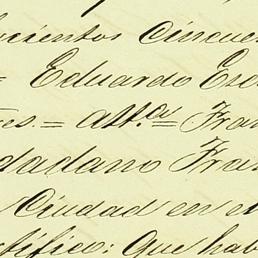 cientos cincue
= Eduardo Es
es.= att.ay Fran
dadano Fran
Ciudad en el
tifico: Que hab